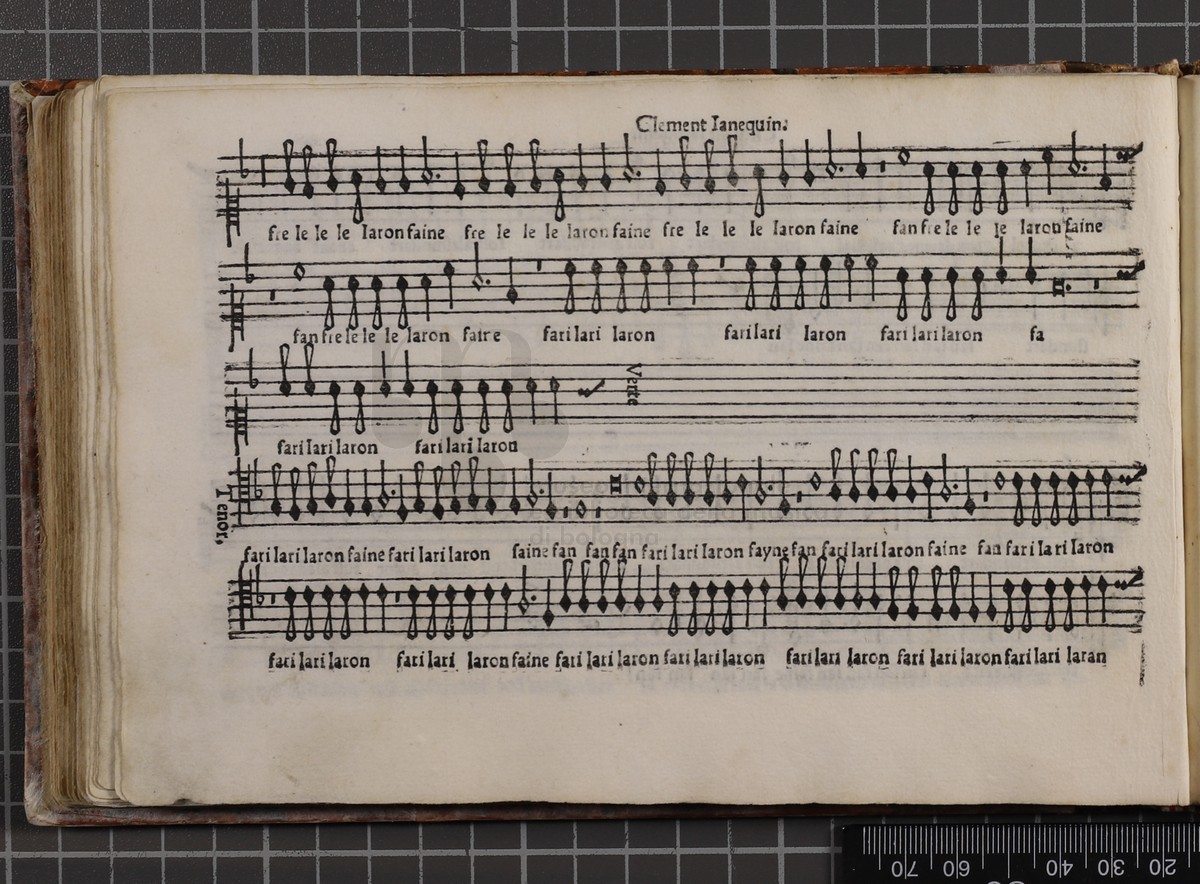 Clement Ianequin.
fre le le le laron faine fre le le le laron faine fre le le le laron faine fan fre le le le laron faine
fan fre le le le laron faire fari lari laron fari lari laron fari lari laron fa
Verte
fari lari laron fari lari laron
Tenor,
fari lari laron faine fari lari laron faine fan fan fan fari lari laron fayne fan fari lari laron faine fan fari la ri laron
fari lari laron fari lari laron faine fari lari laron fari lari laron fari lari laron fari lari laron fari lari laran
museo
biblioteca della musica
di bologna
70 60 40 30 20